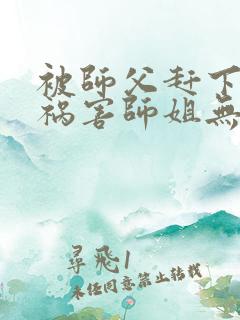 被師父赶下
祸害師姐無
尋飛1
未经同意禁止转载